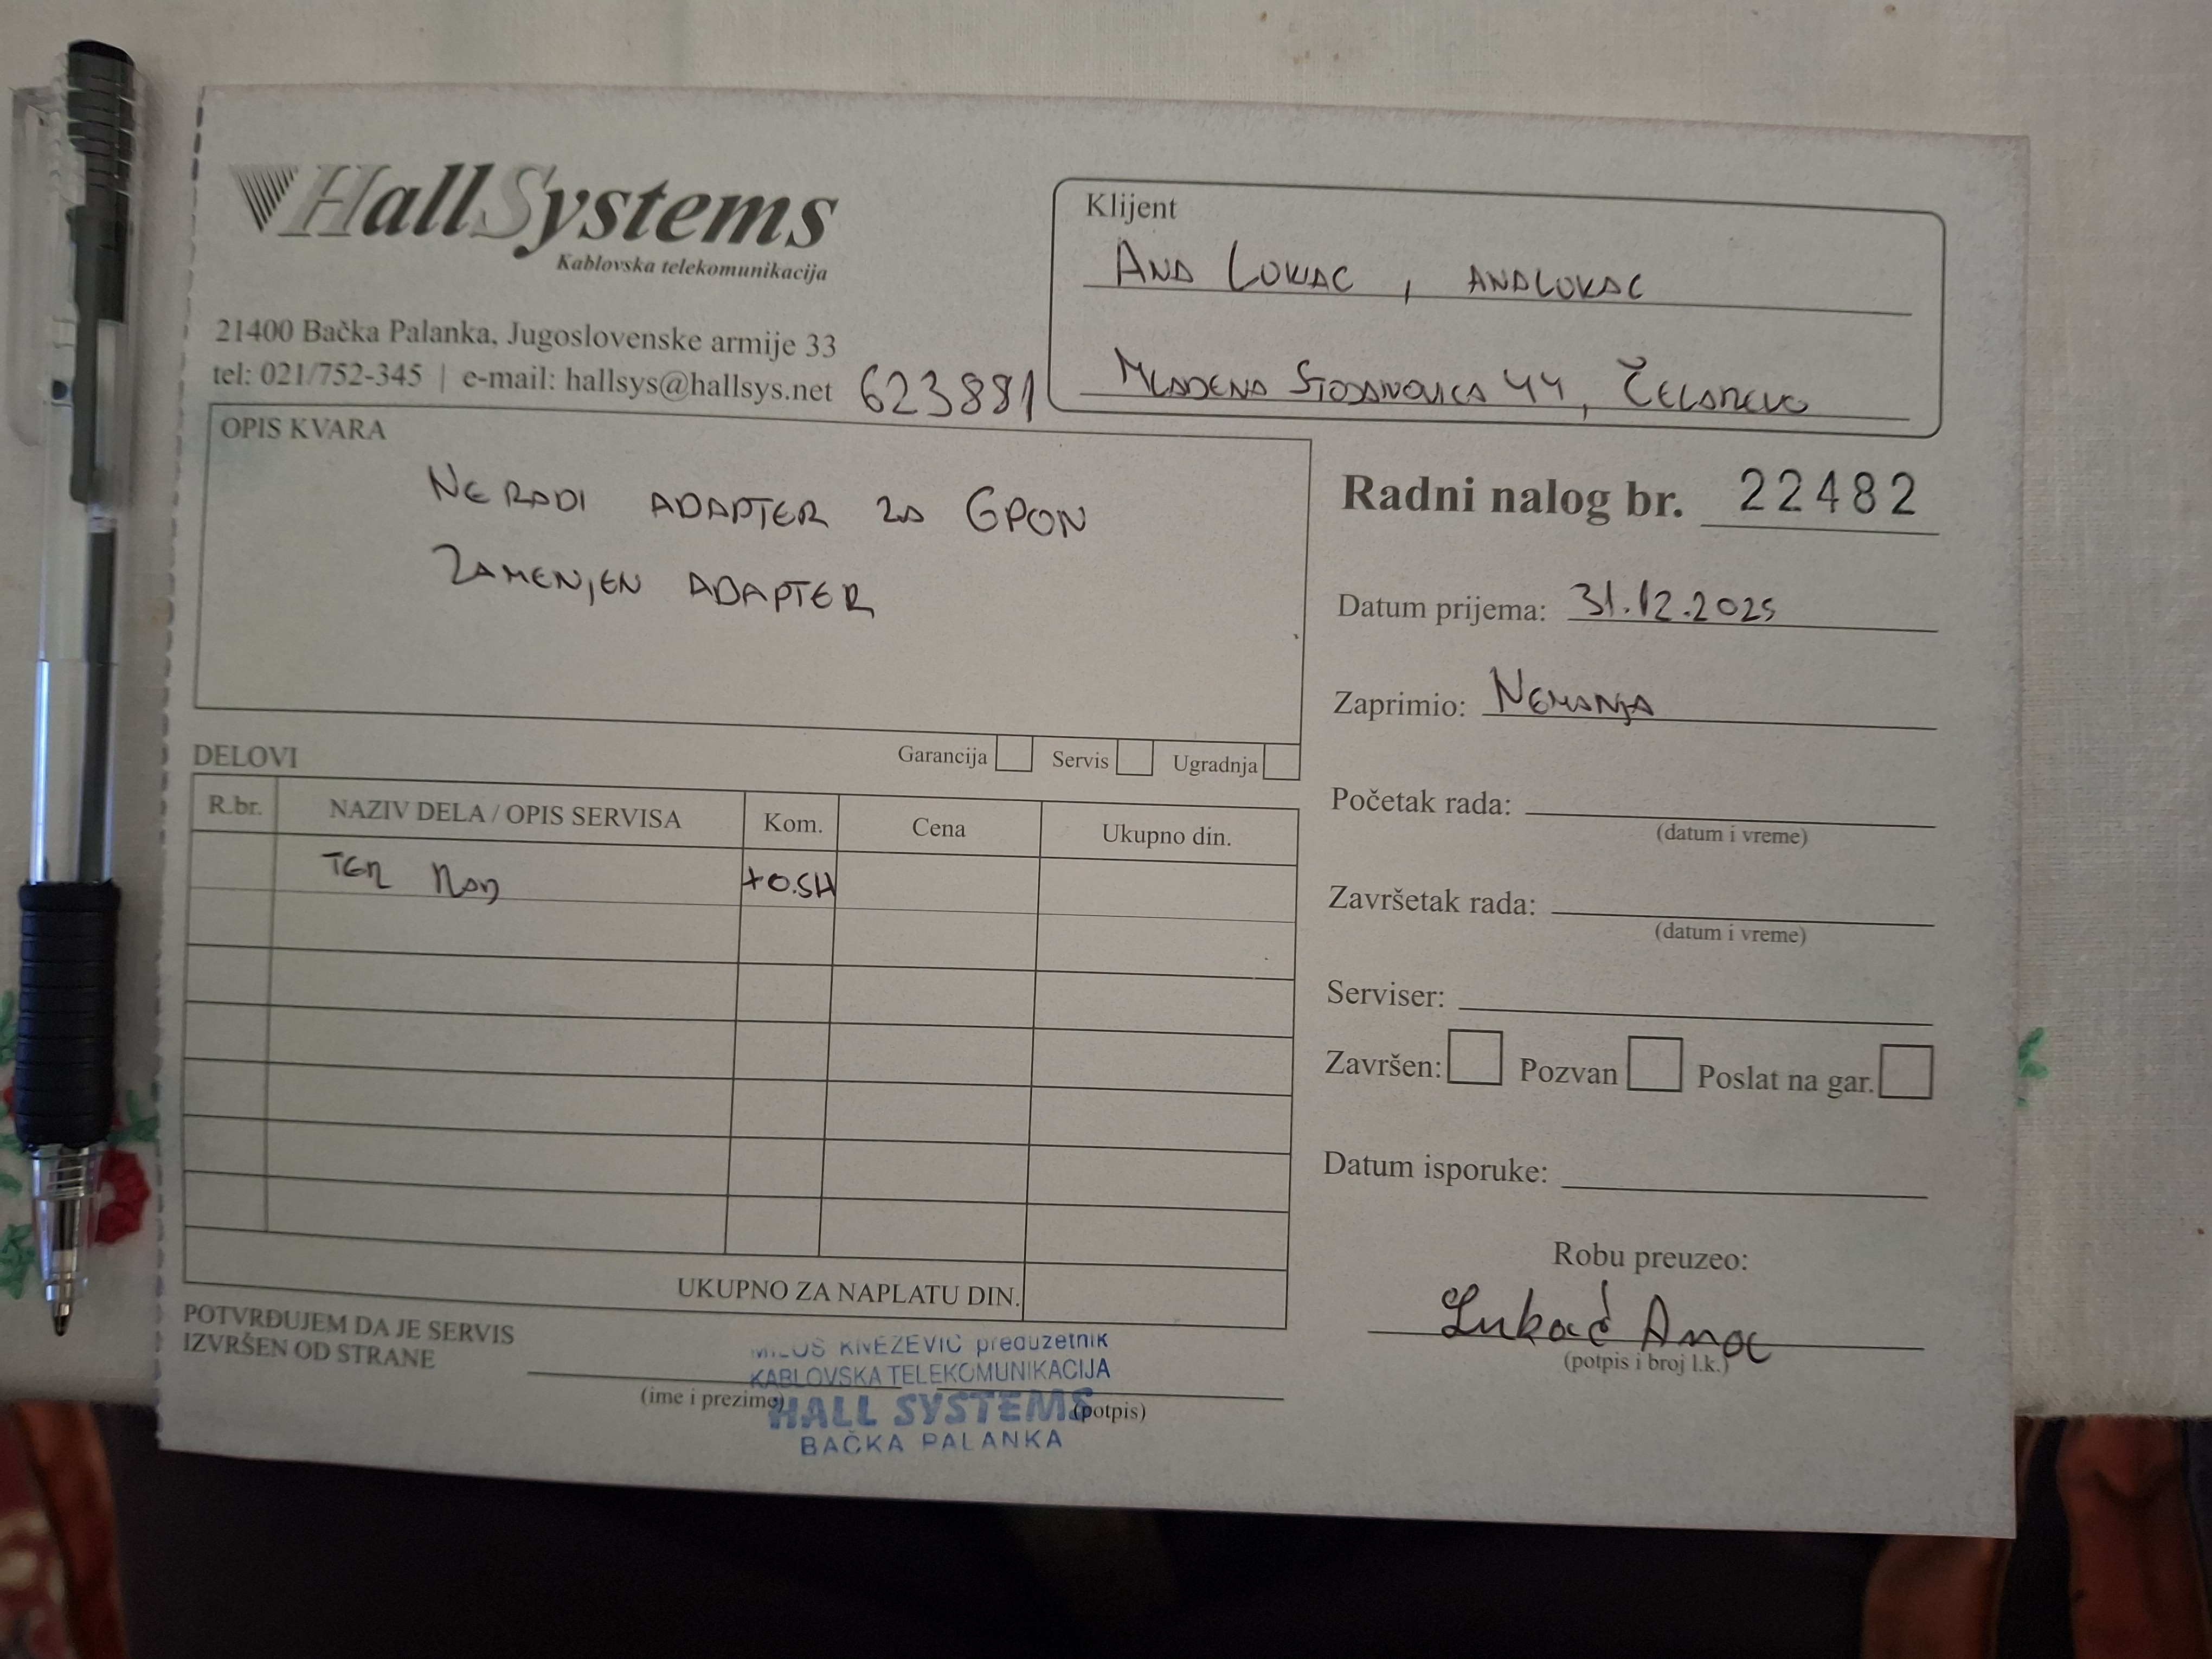 HallSystems
Kablovska telekomunikacija
21400 Bačka Palanka, Jugoslovenske armije 33
tel: 021/752-345 | e-mail: hallsys@hallsys.net
623881
Klijent
ANA LUKAC, ANALUKAC
MLADENA STOJANOVICA 44, ČELAREVO
OPIS KVARA
NE RADI ADAPTER ZA GPON
ZAMENJEN ADAPTER
Garancija Servis Ugradnja
Radni nalog br. 22482
Datum prijema: 31.12.2025
Zaprimio: NEMANJA
Početak rada:
(datum i vreme)
Završetak rada:
(datum i vreme)
Serviser:
Završen: Pozvan Poslat na gar.
Datum isporuke:
Robu preuzeo:
Lukač Ana
(potpis i broj l.k.)
DELOVI
R.br. NAZIV DELA / OPIS SERVISA Kom. Cena Ukupno din.
TER RAD +0.5H
UKUPNO ZA NAPLATU DIN.
POTVRĐUJEM DA JE SERVIS
IZVRŠEN OD STRANE
(ime i prezime)
(potpis)
MILOŠ KNEŽEVIĆ preduzetnik
KABLOVSKA TELEKOMUNIKACIJA
HALL SYSTEMS
BAČKA PALANKA